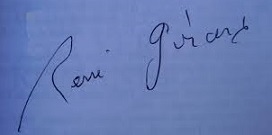 René Girard